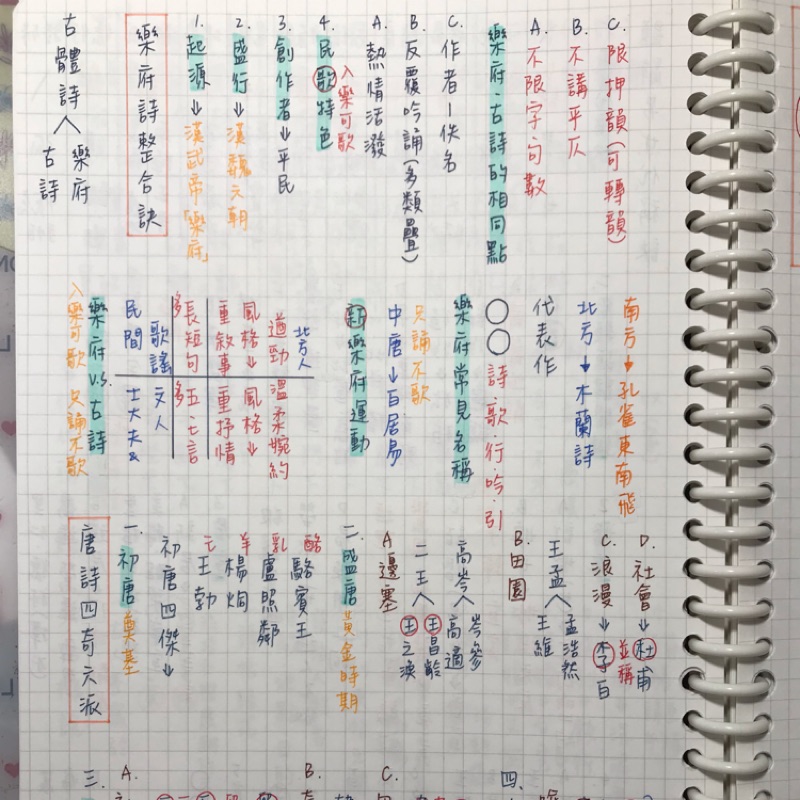 古體詩
古詩
樂府
樂府詩整合訣
1. 起源→漢武帝「樂府」
2. 盛行→漢魏六朝
3. 創作者→平民
4. 民歌特色
入樂可歌
A. 熱情活潑
B. 反覆吟誦(多類疊)
C. 作者—佚名
樂府、古詩的相同點
A. 不限字句數
B. 不講平仄
C. 限押韻(可轉韻)
樂府 v.s. 古詩
入樂可歌 只誦不歌
民間 士大夫&
歌謠 文人
多長短句 多五、七言
重敘事 重抒情
風格→ 風格→
遒勁 溫柔婉約
北方人
新樂府運動
中唐→白居易
只誦不歌
樂府常見名稱
○○詩、歌、行、吟、引
代表作
北方→木蘭詩
南方→孔雀東南飛
唐詩四奇六派
一. 初唐 奠基
初唐四傑→
王勃
楊炯
羊
盧照鄰
乳
駱賓王
酪
二. 盛唐 黃金時期
A 邊塞
二王
王之渙
王昌齡
高岑
高適
岑參
B. 田園
王孟
王維
孟浩然
C. 浪漫→李白
並稱
D. 社會→杜甫
三.
A.
B.
C.
四.